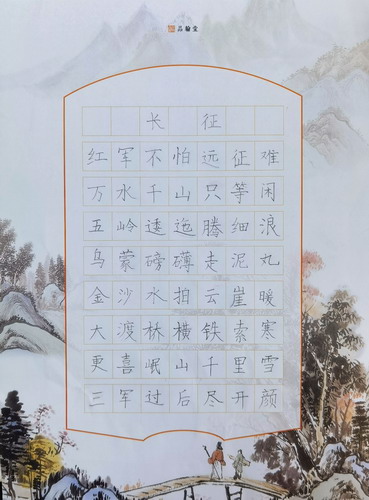 品翰堂
长征
红军不怕远征难
万水千山只等闲
五岭逶迤腾细浪
乌蒙磅礴走泥丸
金沙水拍云崖暖
大渡桥横铁索寒
更喜岷山千里雪
三军过后尽开颜